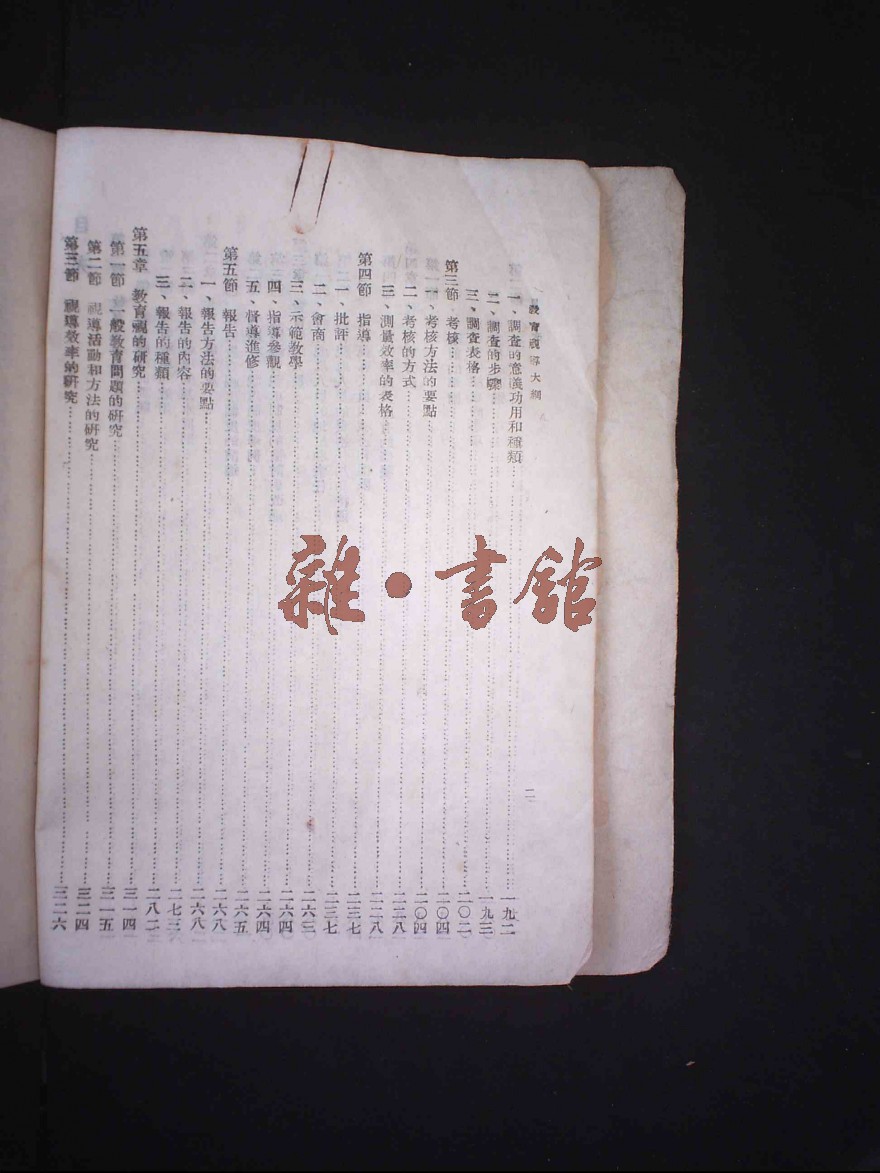 教育視導大綱
二
一、調查的意義功用和種類……一九二
二、調查的步驟……一九三
三、調查表格……二〇二
第三節 考核……二〇四
一、考核方法的要點……二〇四
二、考核的方式……二二八
三、測量效率的表格……二二八
第四節 指導……二三七
一、批評……二三七
二、會商……二六三
三、示範教學……二六四
四、指導參觀……二六四
五、督導進修……二六五
第五節 報告……二六八
一、報告方法的要點……二六八
二、報告的內容……二七三
三、報告的種類……二八二
第五章 教育視的研究……三一四
第一節 一般教育問題的研究……三一五
第二節 視導活動和方法的研究……三二四
第三節 視導效率的研究……三二六
雜·書館